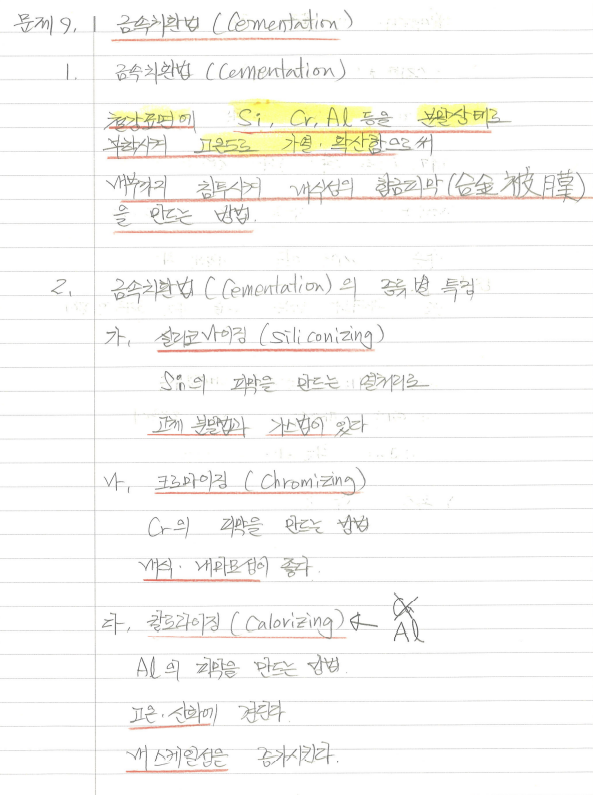 문제 9. 금속치환법 (Cementation)
1. 금속치환법 (Cementation)
철강표면에 Si, Cr, Al 등을 분말상태로
부착시켜 고온도로 가열·확산함으로써
내부까지 침투시켜 내식성의 합금피막(合金被膜)
을 만드는 방법.
2. 금속치환법 (Cementation)의 종류별 특징
가. 실리코나이징 (Siliconizing)
Si의 피막을 만드는 열처리로
고체 분말법과 가스법이 있다
나. 크로마이징 (Chromizing)
Cr의 피막을 만드는 방법
내식·내마모성이 좋다.
다. 칼로라이징 (Calorizing) ← Al
Al의 피막을 만드는 방법.
고온·산화에 견딘다
내스케일성을 증가시킨다.